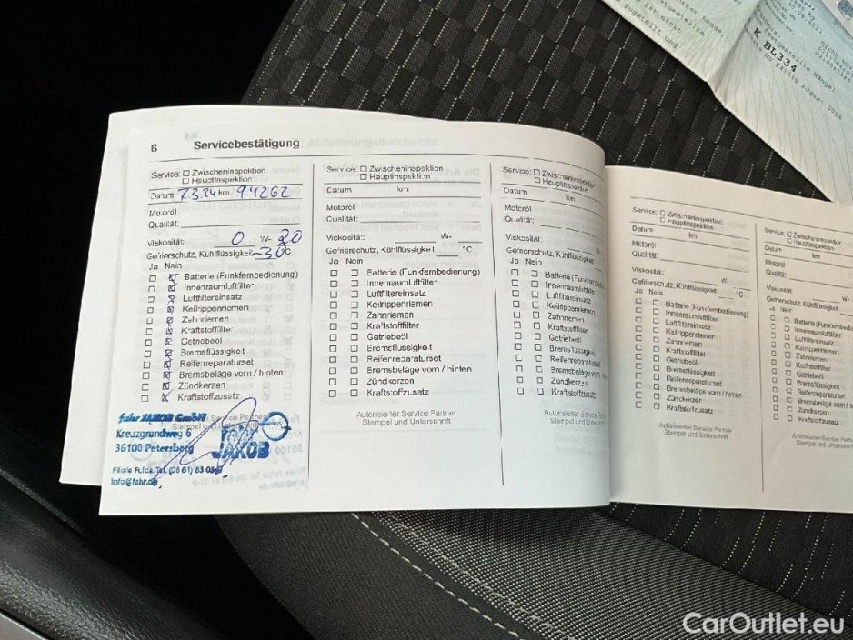 K BL334
6 Servicebestätigung
Service: Zwischeninspektion
Hauptinspektion
Datum 7.3.24 km 94262
Motoröl
Qualität:
Viskosität: 0 W- 20
Gefrierschutz, Kühlflüssigkeit -30°C
Ja Nein
Batterie (Funkfernbedienung)
Innenraumluftfilter
Luftfiltereinsatz
Keilrippenriemen
Zahnriemen
Kraftstofffilter
Getriebeöl
Bremsflüssigkeit
Reifenreparaturset
Bremsbeläge vorn / hinten
Zündkerzen
Kraftstoffzusatz
fahr JAKOB GmbH
Kreuzgrundweg 6
36100 Petersberg
Filiale Fulda Tel. (06 61) 83
info@fahr.de
JAKOB
Service: Zwischeninspektion
Hauptinspektion
Datum km
Motoröl
Qualität:
Viskosität: W-
Gefrierschutz, Kühlflüssigkeit °C
Ja Nein
Batterie (Funkfernbedienung)
Innenraumluftfilter
Luftfiltereinsatz
Keilrippenriemen
Zahnriemen
Kraftstofffilter
Getriebeöl
Bremsflüssigkeit
Reifenreparaturset
Bremsbeläge vorn / hinten
Zündkerzen
Kraftstoffzusatz
Autorisierter Service Partner
Stempel und Unterschrift
Service: Zwischeninspektion
Hauptinspektion
Datum km
Motoröl
Qualität:
Viskosität: W-
Gefrierschutz, Kühlflüssigkeit
Ja Nein
Batterie (Funkfernbedienung)
Innenraumluftfilter
Luftfiltereinsatz
Keilrippenriemen
Zahnriemen
Kraftstofffilter
Getriebeöl
Bremsflüssigkeit
Reifenreparaturset
Bremsbeläge vorn / hinten
Zündkerzen
Kraftstoffzusatz
Autorisierter Service Partner
Stempel und Unterschrift
Service: Zwischeninspektion
Hauptinspektion
Datum km
Motoröl
Qualität:
Viskosität: W-
Gefrierschutz, Kühlflüssigkeit °C
Ja Nein
Batterie (Funkfernbedienung)
Innenraumluftfilter
Luftfiltereinsatz
Keilrippenriemen
Zahnriemen
Kraftstofffilter
Getriebeöl
Bremsflüssigkeit
Reifenreparaturset
Bremsbeläge vorn / hinten
Zündkerzen
Kraftstoffzusatz
Autorisierter Service Partner
Stempel und Unterschrift
Service: Zwischeninspektion
Hauptinspektion
Datum km
Motoröl
Qualität:
Viskosität:
Gefrierschutz, Kühlflüssigkeit
Ja Nein
Batterie
Innenraumluftfilter
Luftfiltereinsatz
Keilrippenriemen
Zahnriemen
Kraftstofffilter
Getriebeöl
Bremsflüssigkeit
Reifenreparaturset
Bremsbeläge vorn
Zündkerzen
Kraftstoffzusatz
Autorisierter Service
Stempel und
CarOutlet.eu